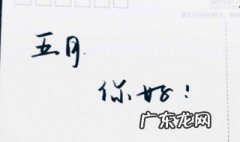 五月
你好！
广东龙网